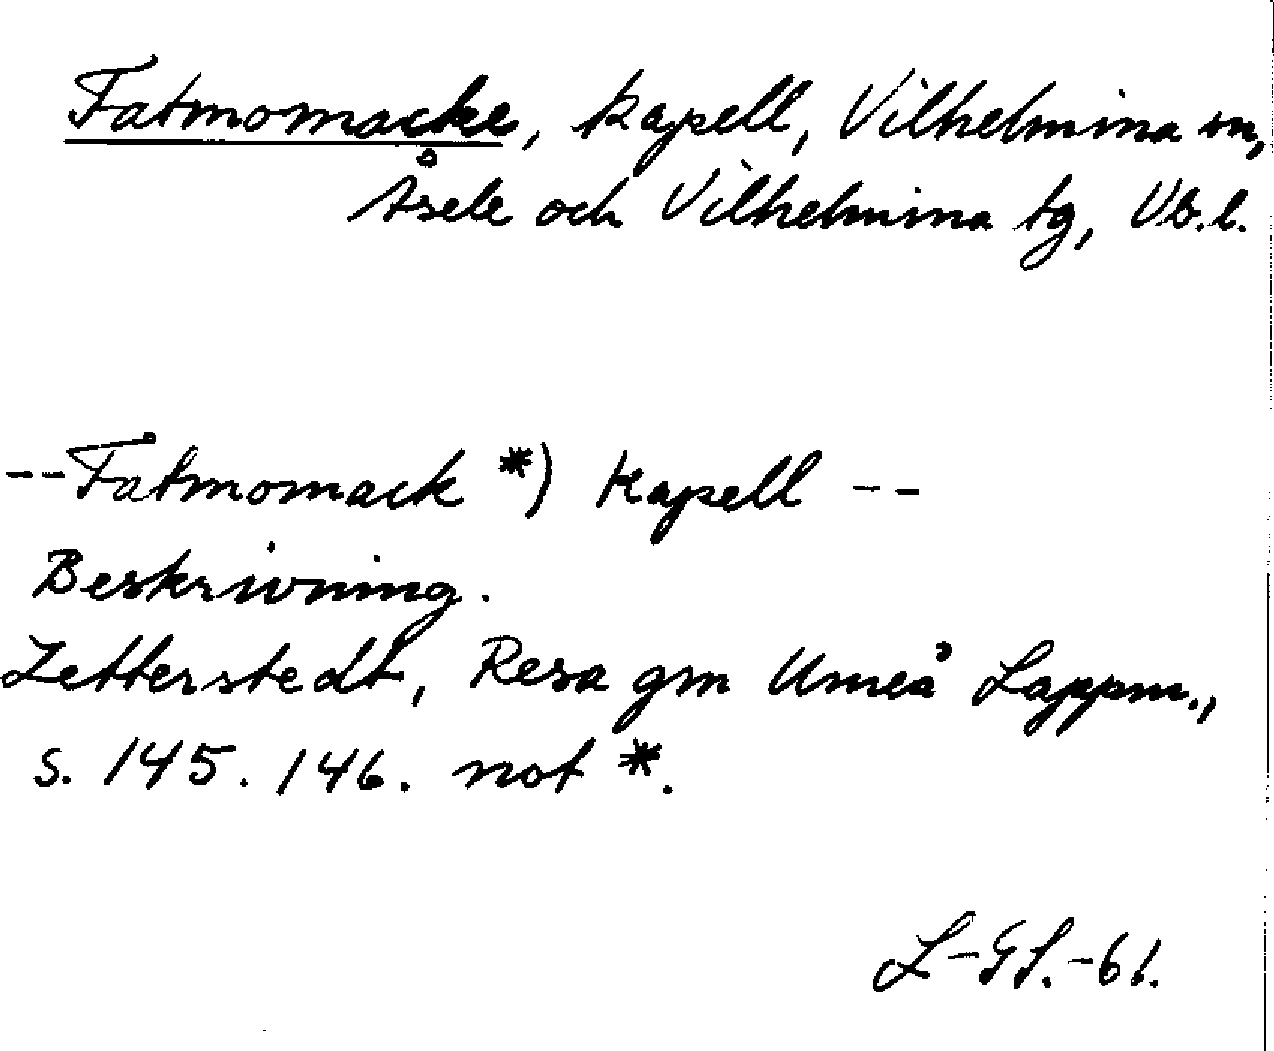 Fatmomacke, kapell, Vilhelmina sn,
Åsele och Vilhelmina tg, Vb.l.
--Fatmomack *) Kapell --
Beskrivning.
Zetterstedt, Resa gm Umeå Lappm.,
s. 145. 146. not *.
L-GL.-61.